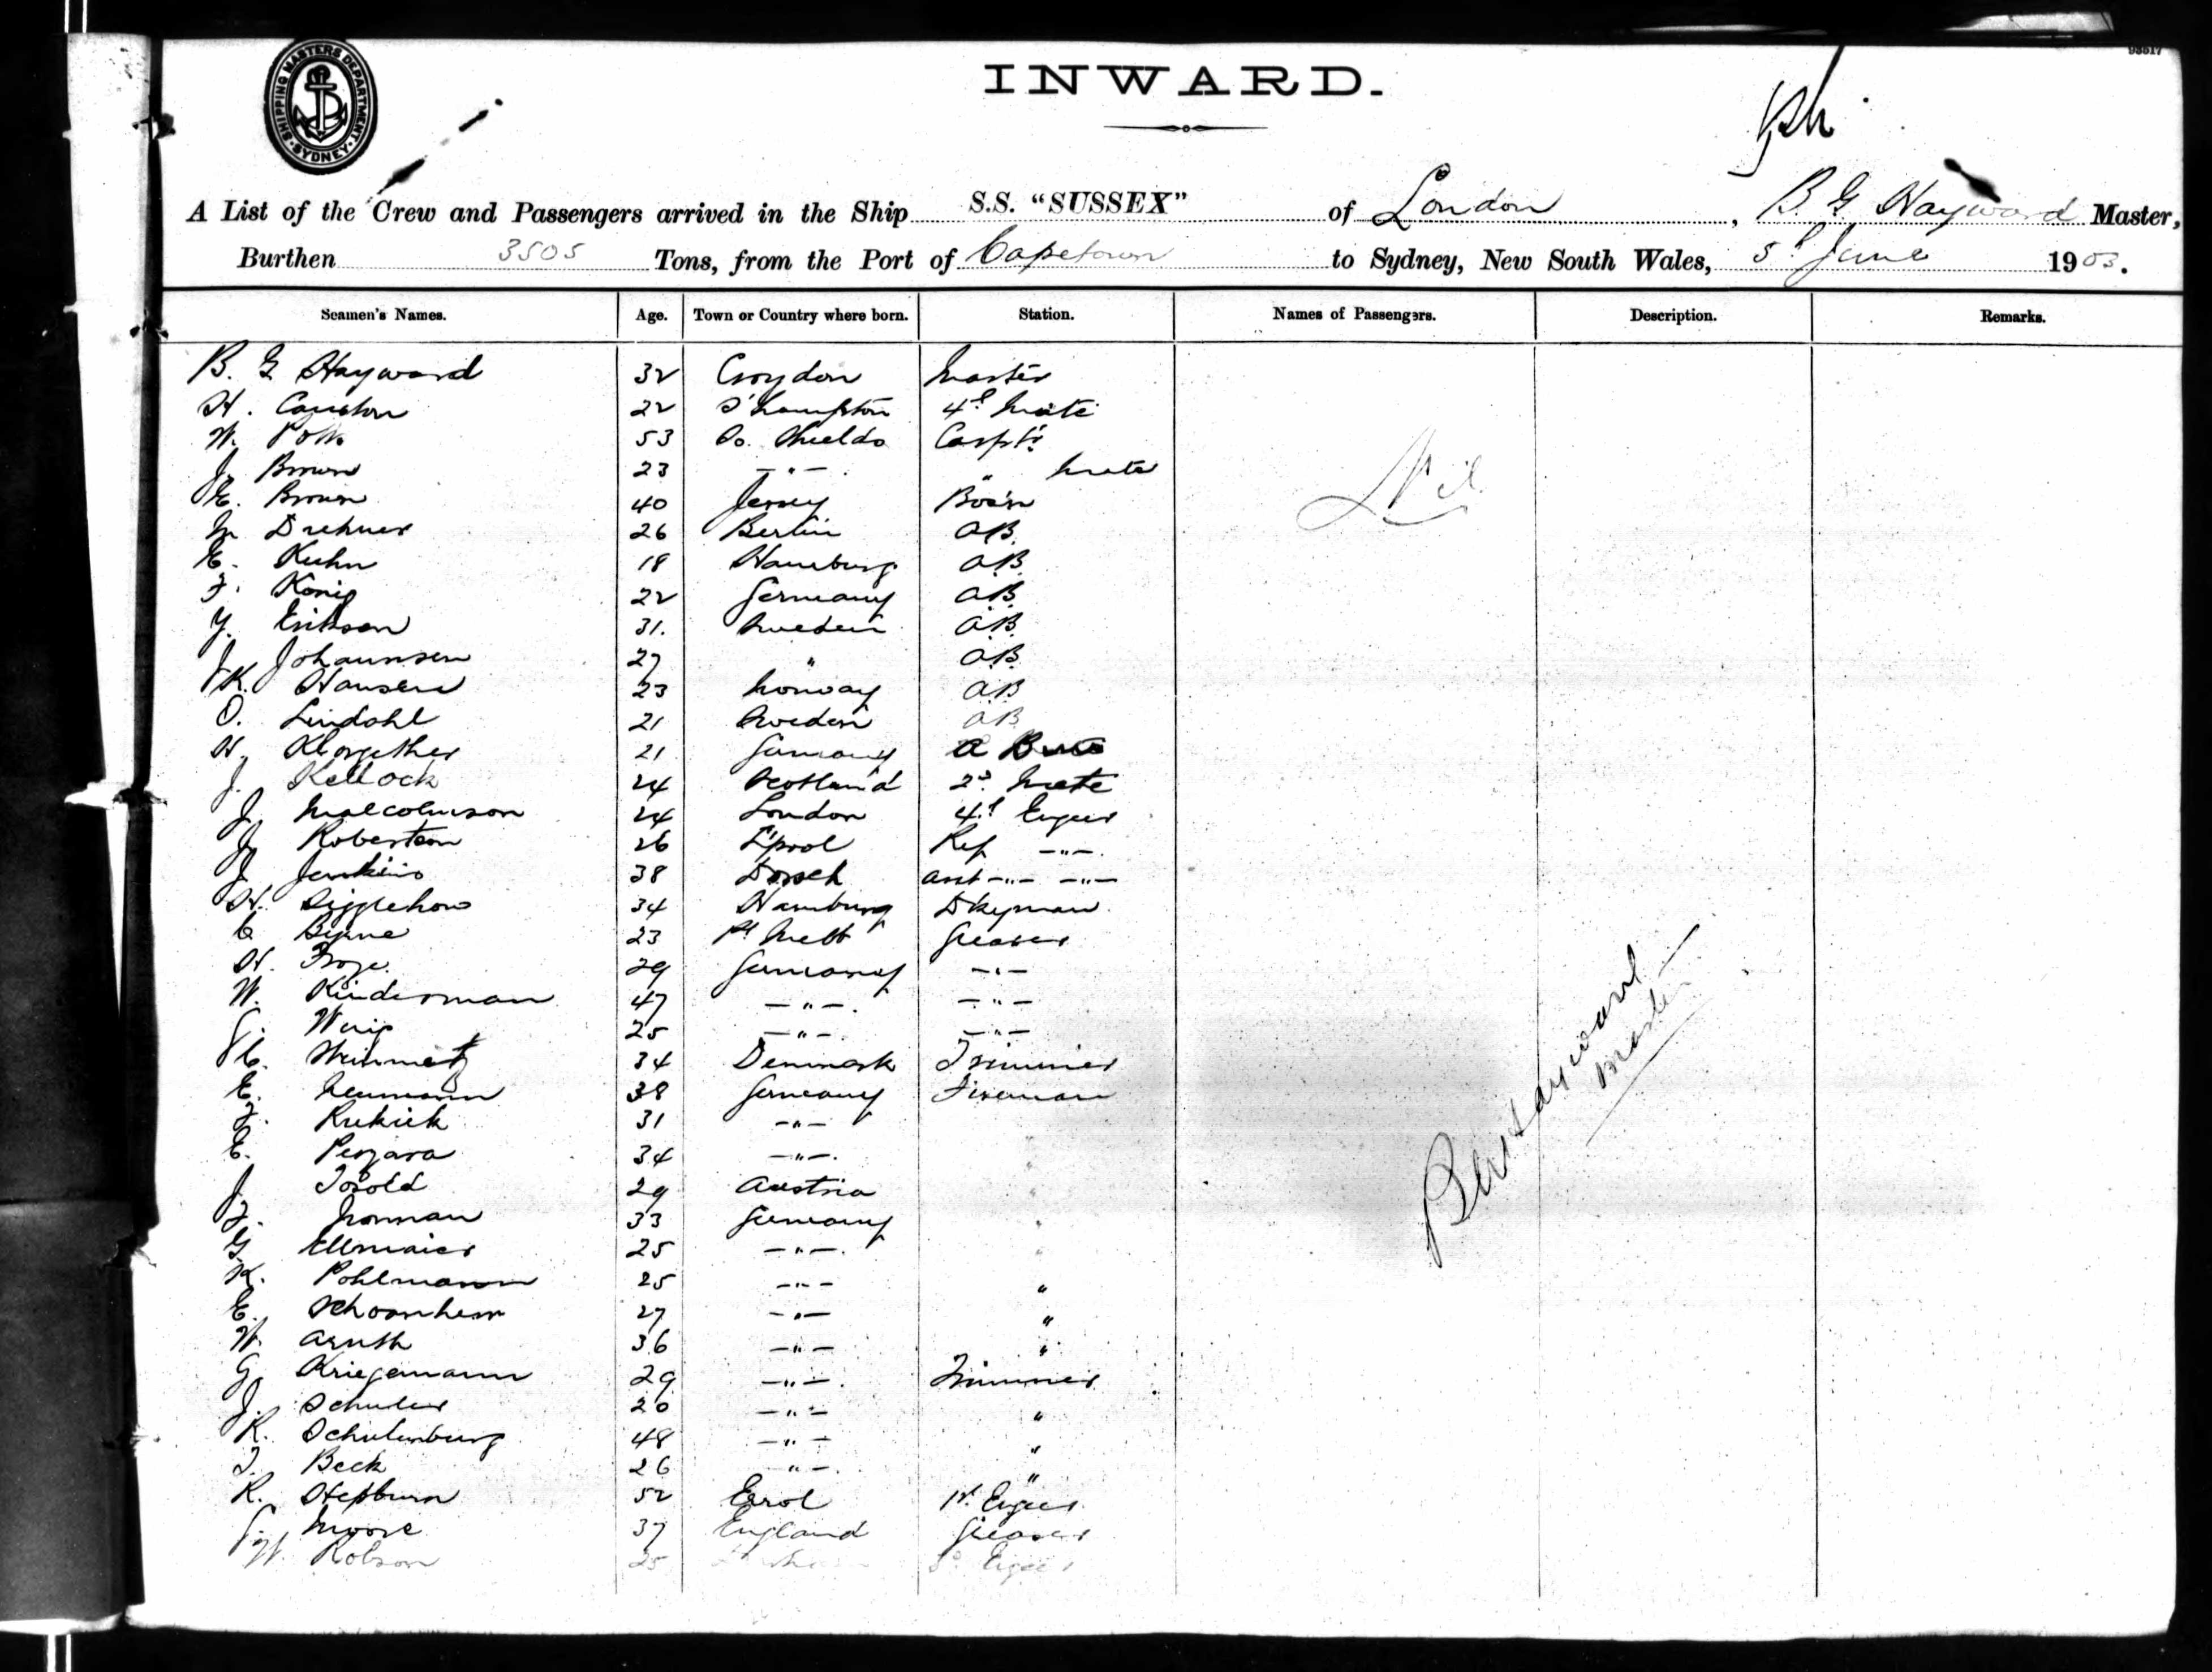 93517
INWARD.
SHIPPING MASTERS DEPARTMENT SYDNEY
A List of the Crew and Passengers arrived in the Ship S.S. "SUSSEX" of London, B. G Hayward Master,
Burthen 3505 Tons, from the Port of Capetown to Sydney, New South Wales, 5th June 1903.
Seamen's Names. Age. Town or Country where born. Station. Names of Passengers. Description. Remarks.
B. G Hayward 32 Croydon Master
H. 22 S'hampton 4th Mate
W. Potts 53 So. Shields Carptr
J. Brown 23 —"— " Mate
E. Brown 40 Jersey Bos'n
Nil
M Drehner 26 Berlin A.B.
E. Kuhn 18 Hamburg A.B.
F. Konig 22 Germany A.B.
Y. Erikson 31. Sweden A.B.
J. Johannsen 27 " A.B.
K. Hansen 23 Norway A.B
O. Lindahl 21 Sweden A.B
H. 21 Germany A B
J. Kellock 24 Scotland 2d Mate
J. Malcolmson 24 London 4th Engeer
J. Robertson 26 L'pool Ref —"—.
J Jenkins 38 Asst —"— —"—
H. 34 Hamburg Dkeyman
C Byrne 23 Greaser
H. 29 Germany —"—
W. Kinderman 47 —"—. —"—
25 —"— —"—
C. 34 Denmark Trimmer
E. Neumann 38 Germany Fireman
F. 31 —"—
E. 34 —"—.
J. 29 Austria
F. 33 Germany "
G. Ellmaier 25 —"—. "
K. Pohlmann 25 —"— "
E. 27 —"— "
W. 36 —"— "
G. Kriegemann 29 —"—. Trimmer
J. Schuler 20 —"— "
R. Schulenburg 48 —"— "
T. Beck 26 —"—. "
R. Hepburn 52 Errol 1st Engeer
Moore 37 England Greaser
W. Robson 25 Engeer
Hayward
Master